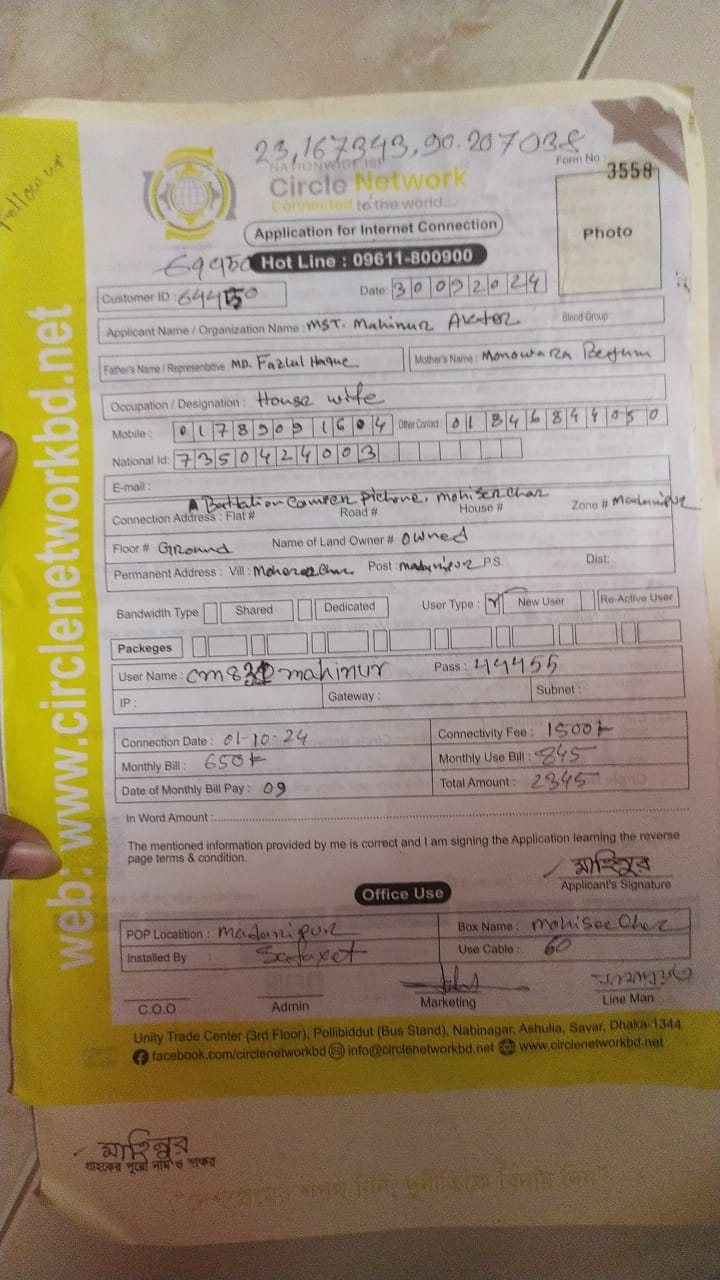 Follow up
23,167343,90.207038
NATIONWIDE ISP
Form No :
3558
Circle Network
Connected to the world....
Application for Internet Connection
Photo
Hot Line : 09611-800900
Customer ID :
Date: 30092024
Applicant Name / Organization Name : MST. Mahinur Akter
Blood Group :
Father's Name / Representative MD. Fazlul Haque
Mother's Name : Monowara Begum
Occupation / Designation : House wife
Mobile : 01789091604 Other Contact : 01846844050
National Id: 7350424003
E-mail :
A Battalion
Connection Address : Flat # Road # House # Zone #
Floor # Ground Name of Land Owner # owned
Permanent Address : Vill : Post : P.S. Dist:
Bandwidth Type Shared Dedicated User Type : New User Re-Active User
Packeges
User Name : mahinur Pass : 44455
IP : Gateway : Subnet :
Connection Date : 01-10-24 Connectivity Fee : 1500
Monthly Bill : 650 Monthly Use Bill : 845
Date of Monthly Bill Pay : 09 Total Amount : 2345
In Word Amount :
The mentioned information provided by me is correct and I am signing the Application learning the reverse
page terms & condition.
মাহিনুর
Applicant's Signature
Office Use
POP Locatition : Madanipur Box Name :
Installed By : Use Cable : 60
C.O.O Admin Marketing Line Man
Unity Trade Center (3rd Floor), Pollibiddut (Bus Stand), Nabinagar, Ashulia, Savar, Dhaka-1344
facebook.com/circlenetworkbd info@circlenetworkbd.net www.circlenetworkbd.net
web: www.circlenetworkbd.net
মাহিনুর
গ্রাহকের পুরো নাম ও স্বাক্ষর